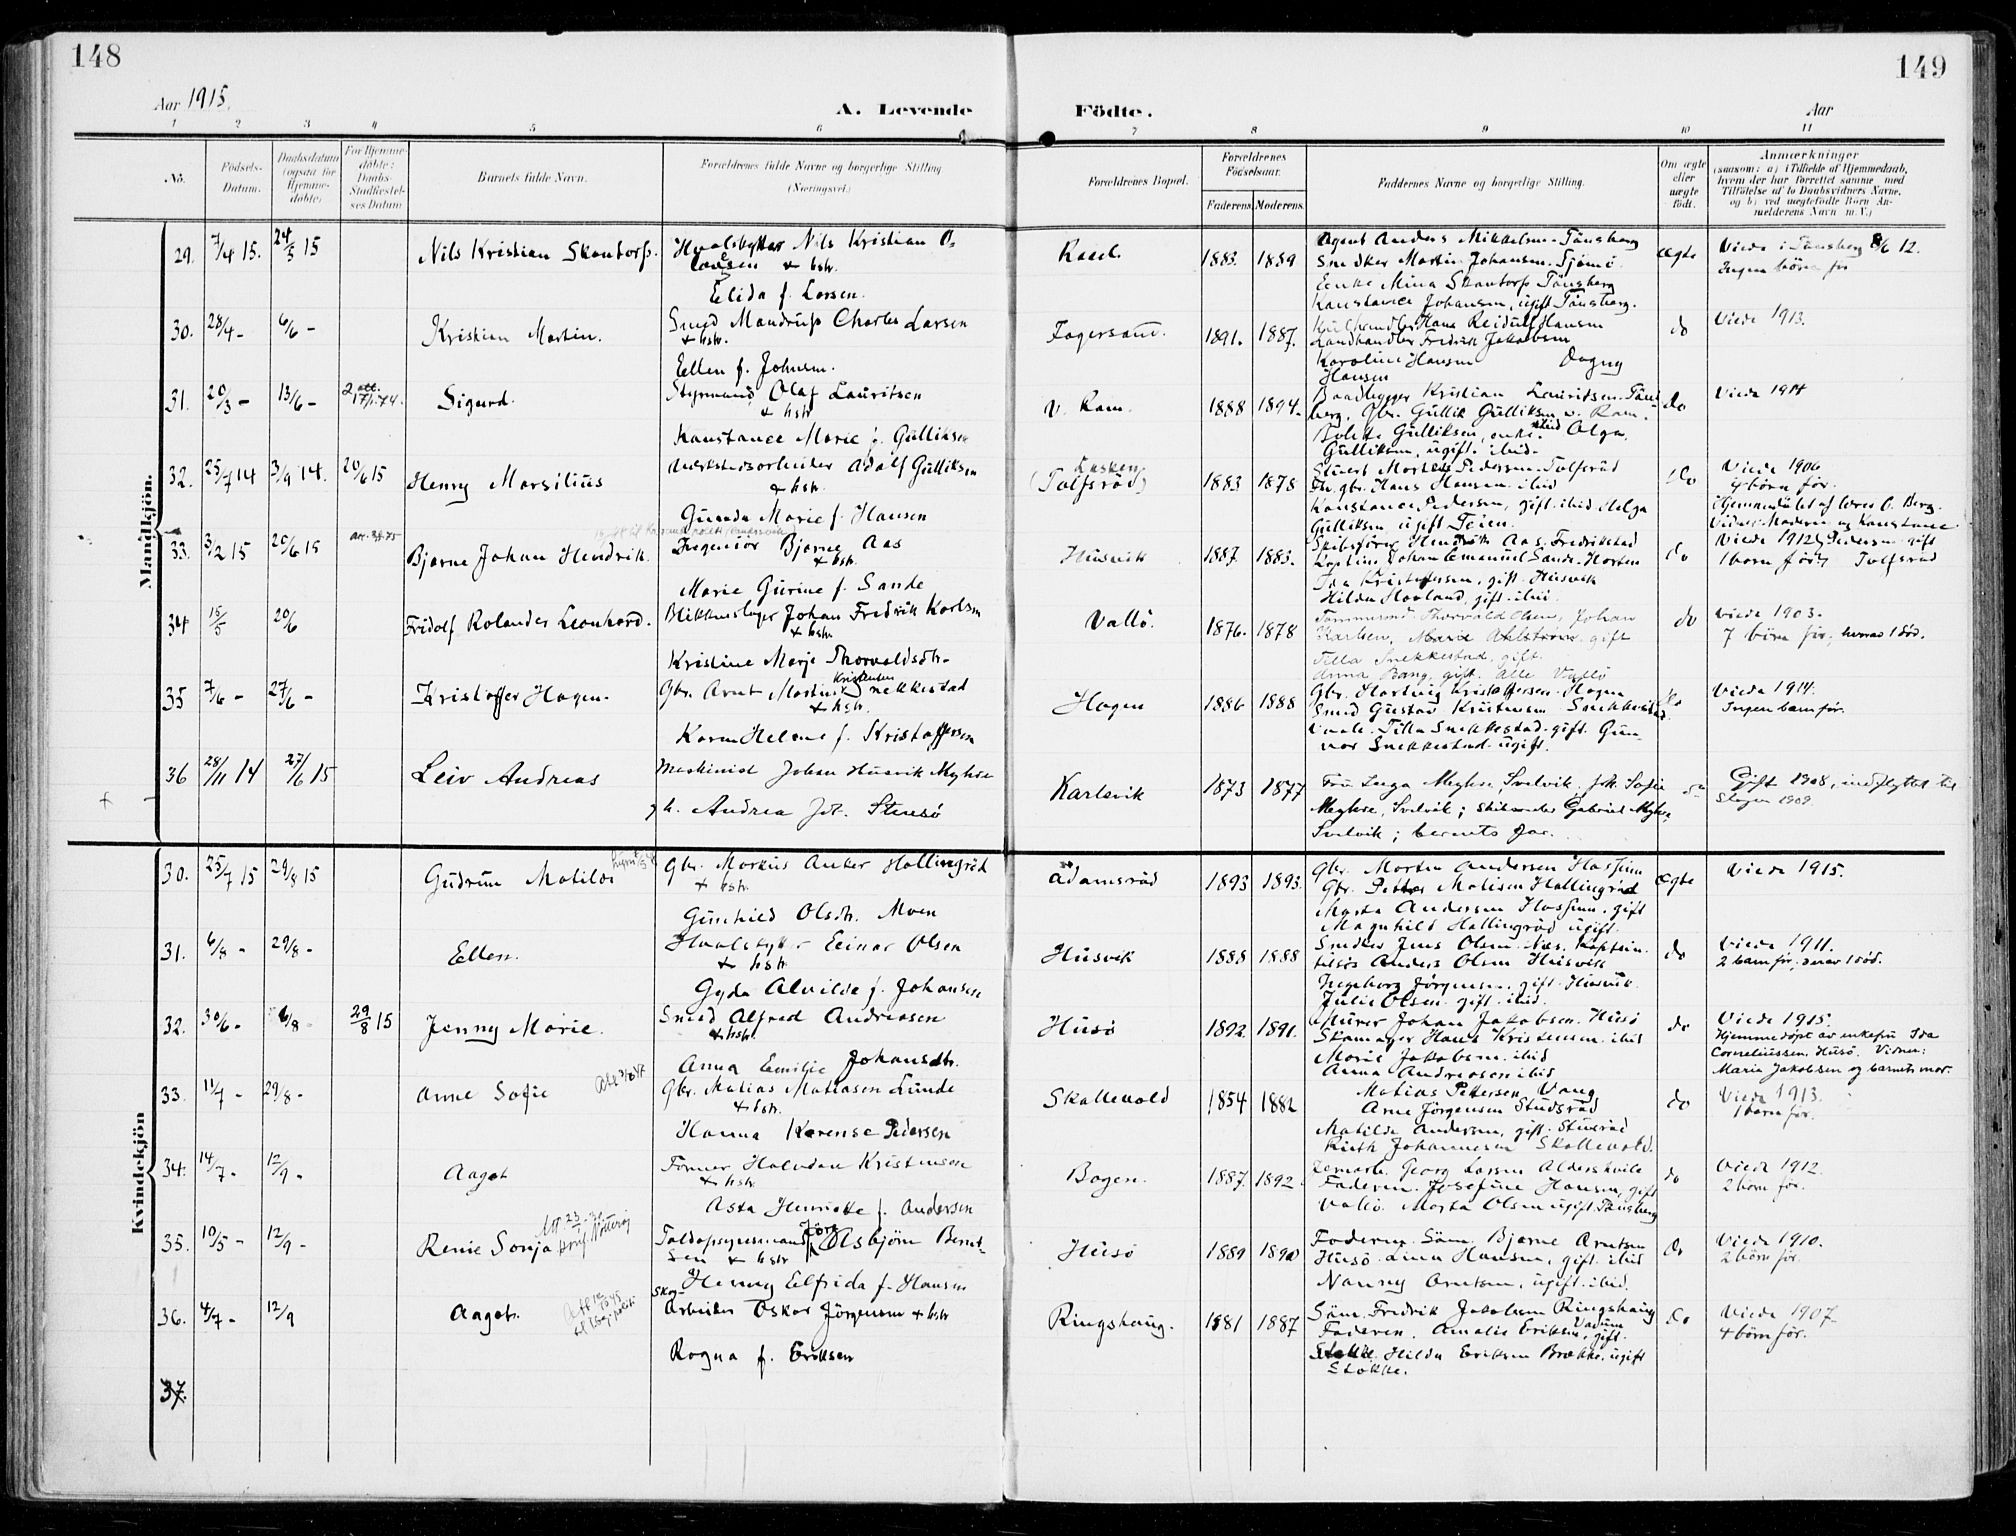 148
149
Aar 1915.
A. Levende
Födte.
Aar
1 2 3 4 5 6 7 8 9 10 11
No.
Födsels-
Datum.
Daabsdatum
(ogsaa for
Hjemme-
döbte)
For Hjemme-
döbte:
Daabs-
Stadfæstel-
ses Datum
Barnets fulde Navn.
Forældrenes fulde Navne og borgerlige Stilling
(Næringsvei.)
Forældrenes Bopæl.
Forældrenes
Födselsaar.
Faderens
Moderens
Faddernes Navne og borgerlige Stilling.
Om ægte
eller
uægte
födt.
Anmærkninger
(saasom: a) i Tilfælde af Hjemmedaab,
hvem der har forrettet samme med
Tilföielse af to Daabsvidners Navne,
og b) ved uægtefödte Börn An-
melderens Navn m. V.)
Mandkjön.
29. 7/4 15. 24/5 15 Nils Kristian Skontorp. Hvalskytter Nils Kristian O-
laussen + hstr.
Elida f. Larsen.
Rael. 1883. 1889
Agent Anders Mikkelsen Tönsberg
Snedker Martin Johansen. Tjömö.
Enke Mina Skontorp Tönsberg
Konstance Johansen, ugift Tönsberg.
Ægte
Viede i Tönsberg 8/6 12.
Ingen börn för
30. 28/4 - 6/6 - Kristian Martin. Smed Mandrup Charles Larsen
+ hstr.
Ellen f. Johnsen.
Fagersand. 1891. 1887.
Kulhandler Hans Reidulf Hansen
Landhandler Fredrik Jakobsen
Karoline Hansen Dagny
Hansen
do
Viede 1913.
31. 20/3 - 13/6 - Sigurd. Styrmand Olaf Lauritsen
+ hstr
Konstance Marie f. Gulliksen
V. Ram. 1888 1894.
Baadbygger Kristian Lauritsen. Töns-
berg. Gbr. Gullik Gulliksen v. Ram.
Bolette Gulliksen, enke. ibid Olga
Gulliksen, ugift. ibid.
do
Viede 1914
32. 25/7 14 3/9 14. 20/6 15 Henny Marsilius Værkstedsarbeider Adolf Gulliksen
+ hstr.
Gunda Marie f. Hansen
Lasken
(Tolfsröd) 1883 1878
Stuert Morten Pedersen. Tolfsröd
Fh. gbr. Hans Hansen ibid
Konstance Pedersen, gift. ibid Helga
Gulliksen ugift Teien.
do
Viede 1906
4 börn för.
Hjemmedöbt af lærer O. Berg.
Vidner: Moderen og Konstance
Pedersen gift
Tolfsröd
33. 3/2 15 20/6 15 Bjarne Johan Hendrik. Ingeniör Bjarne Aas
+ hstr.
Marie Gurine f. Sande
Husvik 1887 1883.
Skibsförer Hendrik Aas. Fredrikstad
Kaptein Johan Emanuel Sande. Horten
Ida Kristoffersen, gift. Husvik
Hilda Hovland, gift. ibid.
do
Viede 1912
1 barn för
34 15/5 20/6 Fridolf Rolander Leonhard. Blikkenslager Johan Fredrik Karlsen
+ hstr.
Kristine Marje Thorvaldsdtr.
Vallö. 1876. 1878
Tömmermd. Thorvald Olsen, Johan
Karlsen, Marie Ahlström. gift
Tilla Snekkestad, gift.
Anna Bang, gift. Alle Vallö
do
Viede 1903.
7 börn för, herav 1 död.
35 7/6 - 27/6 - Kristoffer Hogen. Gbr. Arnt Martin Kristensen Snekkestad
+ hstr.
Karen Helene f. Kristoffersen
Hogen 1886 1888
Gbr. Hartvig Kristoffersen. Hogen
Smed Gustav Kristensen Snekkestad.
Tilla Snekkestad. gift. Gun-
vor Snekkestad. ugift.
do
Viede 1914.
Ingen barn för.
36 28/11 14 27/6 15 Leiv Andreas Maskinist Johan Husvik Myhre
gh. Andrea Joh. Stensö
Karlsvik 1873 1877
Fru Inga Myhre, Svelvik. frk. Sofie
Myhre, Svelvik; skibsreder Gabriel Myhre,
Svelvik; barnets far.
Gift 1908, indflyttet til
Slagen 1909.
Kvindekjön
30. 25/7 15 29/8 15 Gudrun Matilde Gbr. Markus Anker Hallingröd
+ hstr.
Gunhild Olsdtr. Moen
Adamsröd 1893 1893.
Gbr. Martin Andersen Hassum
Gbr. Petter Matisen Hallingröd
Marta Andersen Hassum. gift
Magnhild Hallingröd ugift.
Ægte
Viede 1915.
31. 6/8 - 29/8 - Ellen. Hvalskytter Einar Olsen
+ hstr.
Gyda Alvilde f. Johansen
Husvik 1888 1888
Snedker Jens Olsen. Næs. Kaptein
tilsjös Anders Olsen Husvik
Ingeborg Jörgensen. gift. Husvik.
Julie Olsen. gift. ibid.
do
Viede 1911.
2 barn för, derav 1 död.
32. 30/6 - 6/8 - 29/8 15 Jenny Marie. Smed Alfred Andreasen
+ hstr.
Anna Emilie Johansdtr.
Husö 1892 1891.
Murer Johan Jakobsen. Husö
Skomager Hans Kristensen. ibid
Marie Jakobsen. ibid
Anna Andreasen ibid
do
Viede 1915.
Hjemmedöpt av enkefru Ida
Corneliussen, Husö. Vidner:
Marie Jakobsen og barnets mor.
33. 11/7 - 29/8 - Anne Sofie Gbr. Matias Matiasen Lunde
+ hstr.
Hanna Karense Pedersen
Skallevold 1854 1882
Matias Pettersen Vang
Arne Jörgensen Studsröd
Matilde Andersen, gift.
Ruth Johannesen Skallevold.
do
Viede 1913.
1 barn för.
34. 14/7 - 12/9 - Aagot Former Halvdan Kristensen
+ hstr.
Asta Henriette f. Andersen
Bogen. 1887. 1892.
Georg Larsen
Faderen. Josefine Hansen, gift
Vallö. Marta Olsen ugift. Tönsberg
do
Viede 1912.
2 börn för.
35. 10/5 - 12/9 - Renie Sonja Toldopsynsmand Jörg. Asbjörn Bernt-
sen + hstr
Henny Elfrida f. Hansen
Husö 1889 1890
Faderen. Söm. Bjarne Arntsen
Husö. Lina Hansen, gift. ibid
Nanny Arntsen, ugift. ibid.
do
Viede 1910.
2 börn för.
36. 4/7 - 12/9 Aagot. Skog-
Arbeider Oskar Jörgensen + hstr
Ragna f. Eriksen
Ringshaug. 1881 1887
Söm. Fredrik Jakobsen Ringshaug
Faderen. Amalie Eriksen, gift.
Stokke. Hilda Eriksen Brække, ugift
Stokke.
do
Viede 1907
4 börn för.
37.